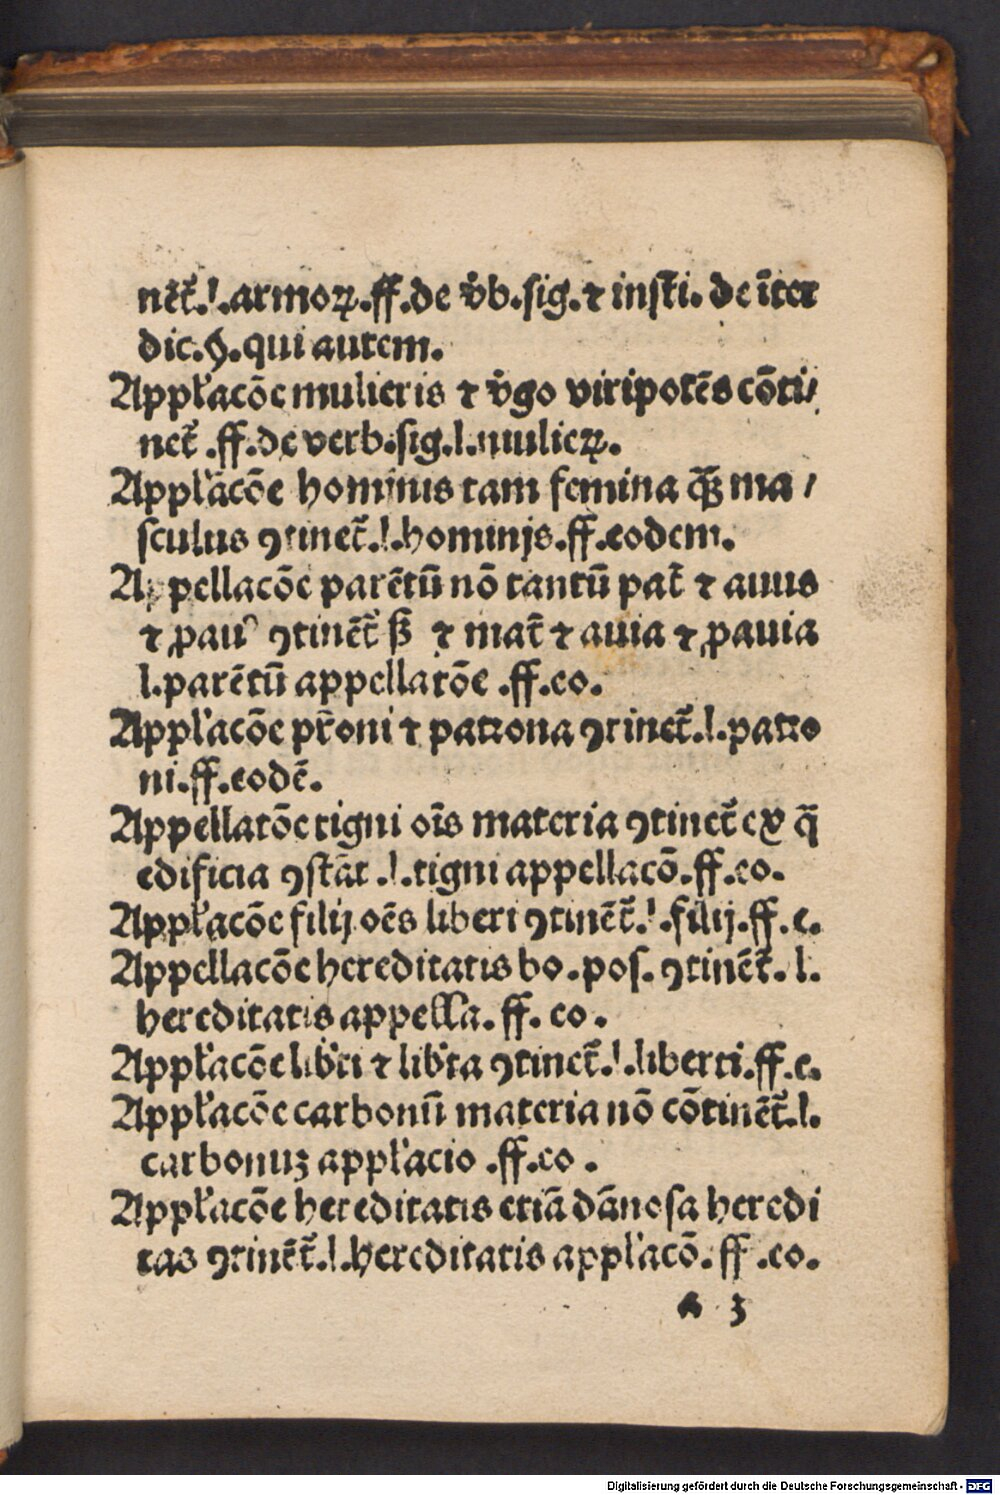 nēt̄.l.armoꝝ.ff.de v̓b.sig.⁊ insti. de īter
dic.§.qui autem.
Appl'acōe mulieris ⁊ v̓go viripotēs cōti/
net̄ .ff.de verb.sig.l.mulieꝝ.
Appl'acōe hominis tam femina q̄ꝫ ma/
sculus ꝯtinet̄.l.hominis.ff.eodem.
Appellacōe parētū nō tantū pat̄ ⁊ auus
⁊ ꝓauꝰ ꝯtinēt̄ sꝫ ⁊ mat̄ ⁊ auia ⁊ ꝓauia
l.parētū appellatōe .ff.eo.
Appl'acōe pr̄oni ⁊ patrona ꝯtinet̄.l.patro
ni.ff.eodē.
Appellatōe tigni oīs materia ꝯtinet̄ ex q̄
edificia ꝯstāt .l.tigni appellacō.ff.eo.
Appl'acōe filij oēs liberi ꝯtinēt̄.l.filij.ff.e.
Appellacōe hereditatis bo.pos. ꝯtinēt̄. l.
hereditatis appella. ff. eo .
Appl'acōe lib'ti ⁊ lib'ta ꝯtinet̄.l.liberti.ff.e.
Appl'acōe carbonū materia nō cōtinēt̄.l.
carbonuꝫ appl'acio .ff.eo .
Appl'acōe hereditatis etiā dānosa heredi
tas ꝯtinēt̄.l.hereditatis appl'acō. ff .eo.
a 3
Digitalisierung gefördert durch die Deutsche Forschungsgemeinschaft - DFG